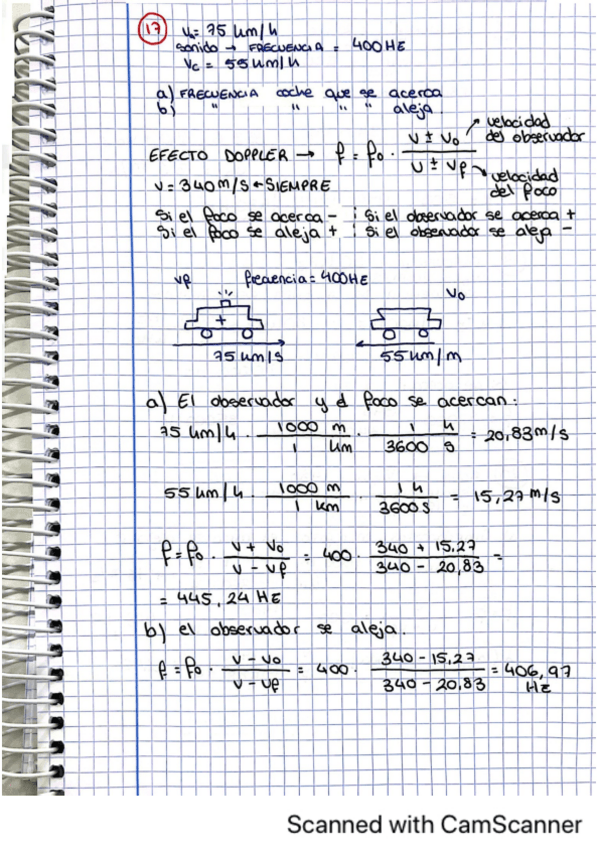 17 Va = 75 km/h
sonido → FRECUENCIA = 400HE
Vc = 55 km/h
a) FRECUENCIA coche que se acerca
b) " " " " aleja.
EFECTO DOPPLER → f = fo · (V ± Vo) / (V ± Vf)
velocidad del observador
velocidad del foco
V = 340 m/s ← SIEMPRE
Si el foco se acerca - ¦ Si el observador se acerca +
Si el foco se aleja + ¦ Si el observador se aleja -
Vf frecuencia = 400HE Vo
75 km/s 55 km/m
a) El observador y el foco se acercan:
75 km/h · 1000 m / 1 km · 1 h / 3600 s = 20,83 m/s
55 km/h · 1000 m / 1 km · 1 h / 3600 s = 15,27 m/s
f = fo · (V + Vo) / (V - Vf) = 400 · (340 + 15,27) / (340 - 20,83) =
= 445,24 HE
b) el observador se aleja.
f = fo · (V - Vo) / (V - Vf) = 400 · (340 - 15,27) / (340 - 20,83) = 406,97 Hz
Scanned with CamScanner